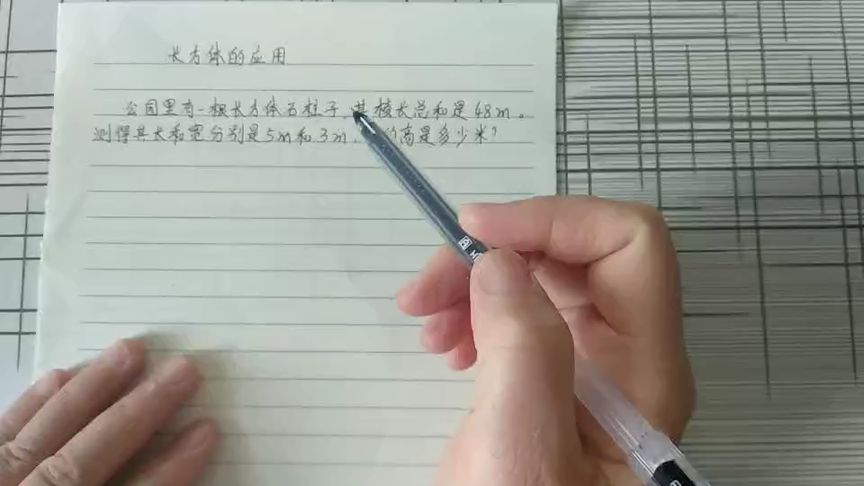 长方体的应用
公园里有一根长方体石柱子,其棱长总和是48m。
测得其长和宽分别是5m和3m,的高是多少米?